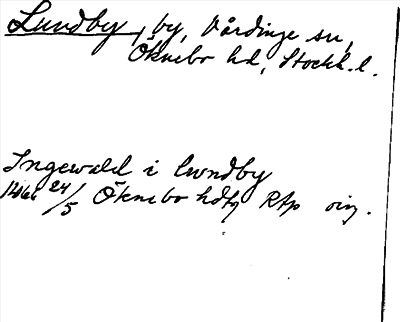 Lundby, by, Vårdinge sn,
Öknebo hd, Stockh. l.
Ingewald i lwndby
1466 24/5 Öknebo hdtg RAp orig.